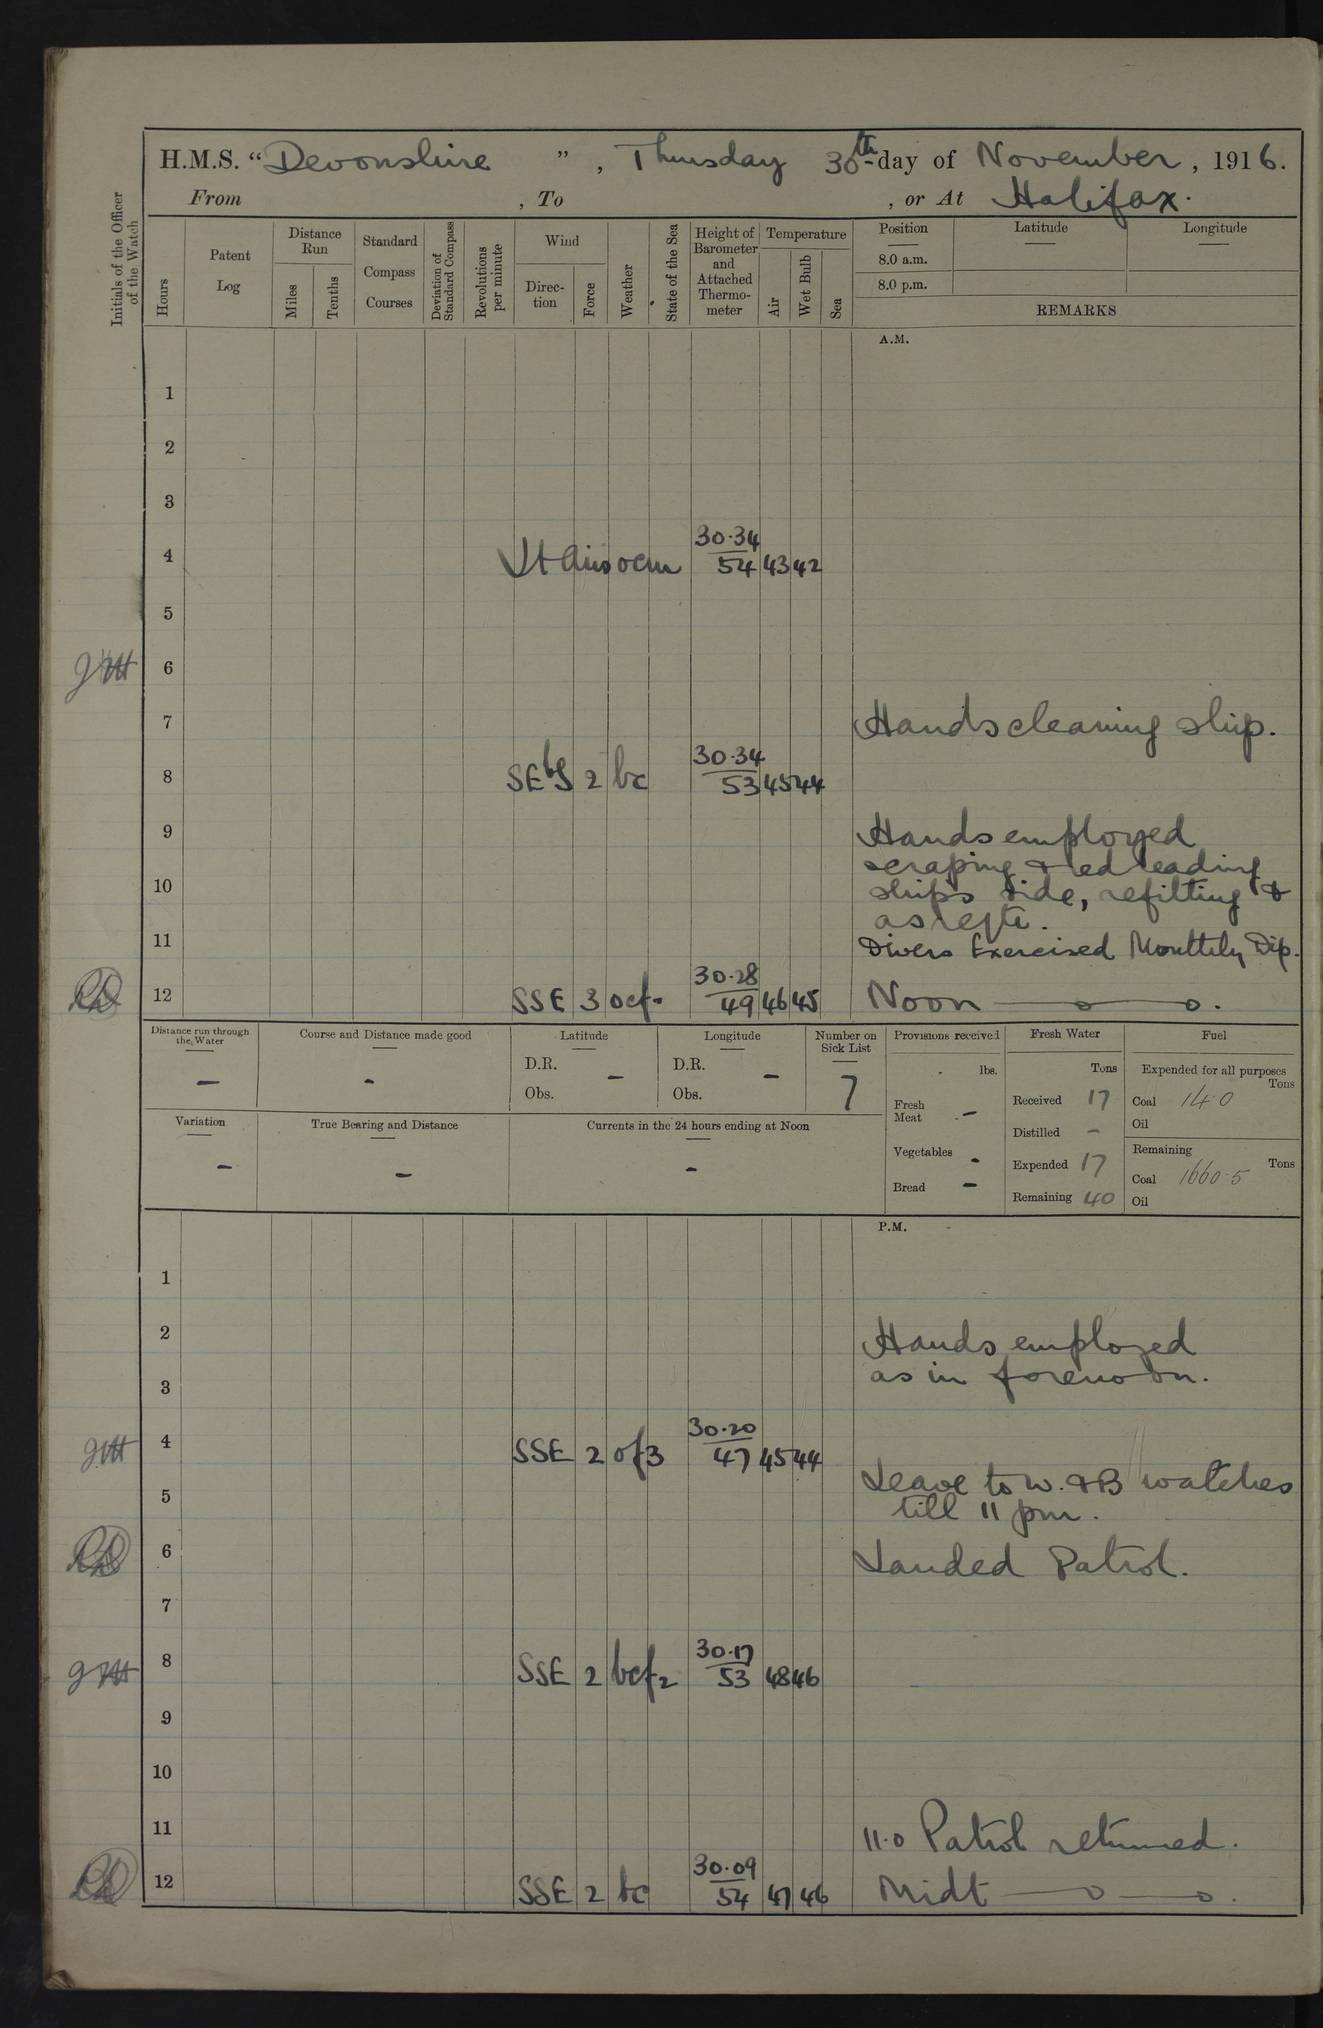 H.M.S. “Devonshire ”, Thursday 30th day of November, 1916.
From , To , or At Halifax.
Initials of the Officer of the Watch
Hours
Patent Log
Distance Run
Miles
Tenths
Standard Compass Courses
Deviation of Standard Compass
Revolutions per minute
Wind
Direc-tion
Force
Weather
State of the Sea
Height of Barometer and Attached Thermo-meter
Temperature
Air
Wet Bulb
Sea
Position
8.0 a.m.
8.0 p.m.
Latitude
Longitude
REMARKS
A.M.
1
2
3
4 Lt Airs ocm 30.34 54 43 42
5
6
7 Hands cleaning ship.
8 SEbS 2 bc 30.34 53 45 44
9 Hands employed
scraping & redleading
10 ships side, refitting &
as reqte.
11 Divers Exercised Monthly Dip.
12 SSE 3 ocf. 30.28 49 46 45 Noon — o — o.
Distance run through the Water –
Course and Distance made good -
Latitude
D.R. –
Obs.
Longitude
D.R. –
Obs.
Number on Sick List
7
Provisions received
lbs.
Fresh Meat –
Vegetables -
Bread –
Fresh Water
Tons
Received 17
Distilled –
Expended 17
Remaining 40
Fuel
Expended for all purposes
Tons
Coal 14.0
Oil
Remaining
Tons
Coal 1660.5
Oil
Variation –
True Bearing and Distance –
Currents in the 24 hours ending at Noon -
P.M.
1
2 Hands employed
3 as in forenoon.
4 SSE 2 of3 30.20 47 45 44
Leave to W. & B watches
5 till 11 pm.
6 Landed Patrol.
7
8 SSE 2 bcf2 30.17 53 48 46
9
10
11 11.0 Patrol returned.
12 SSE 2 bc 30.09 54 47 46 Midt — o — o.